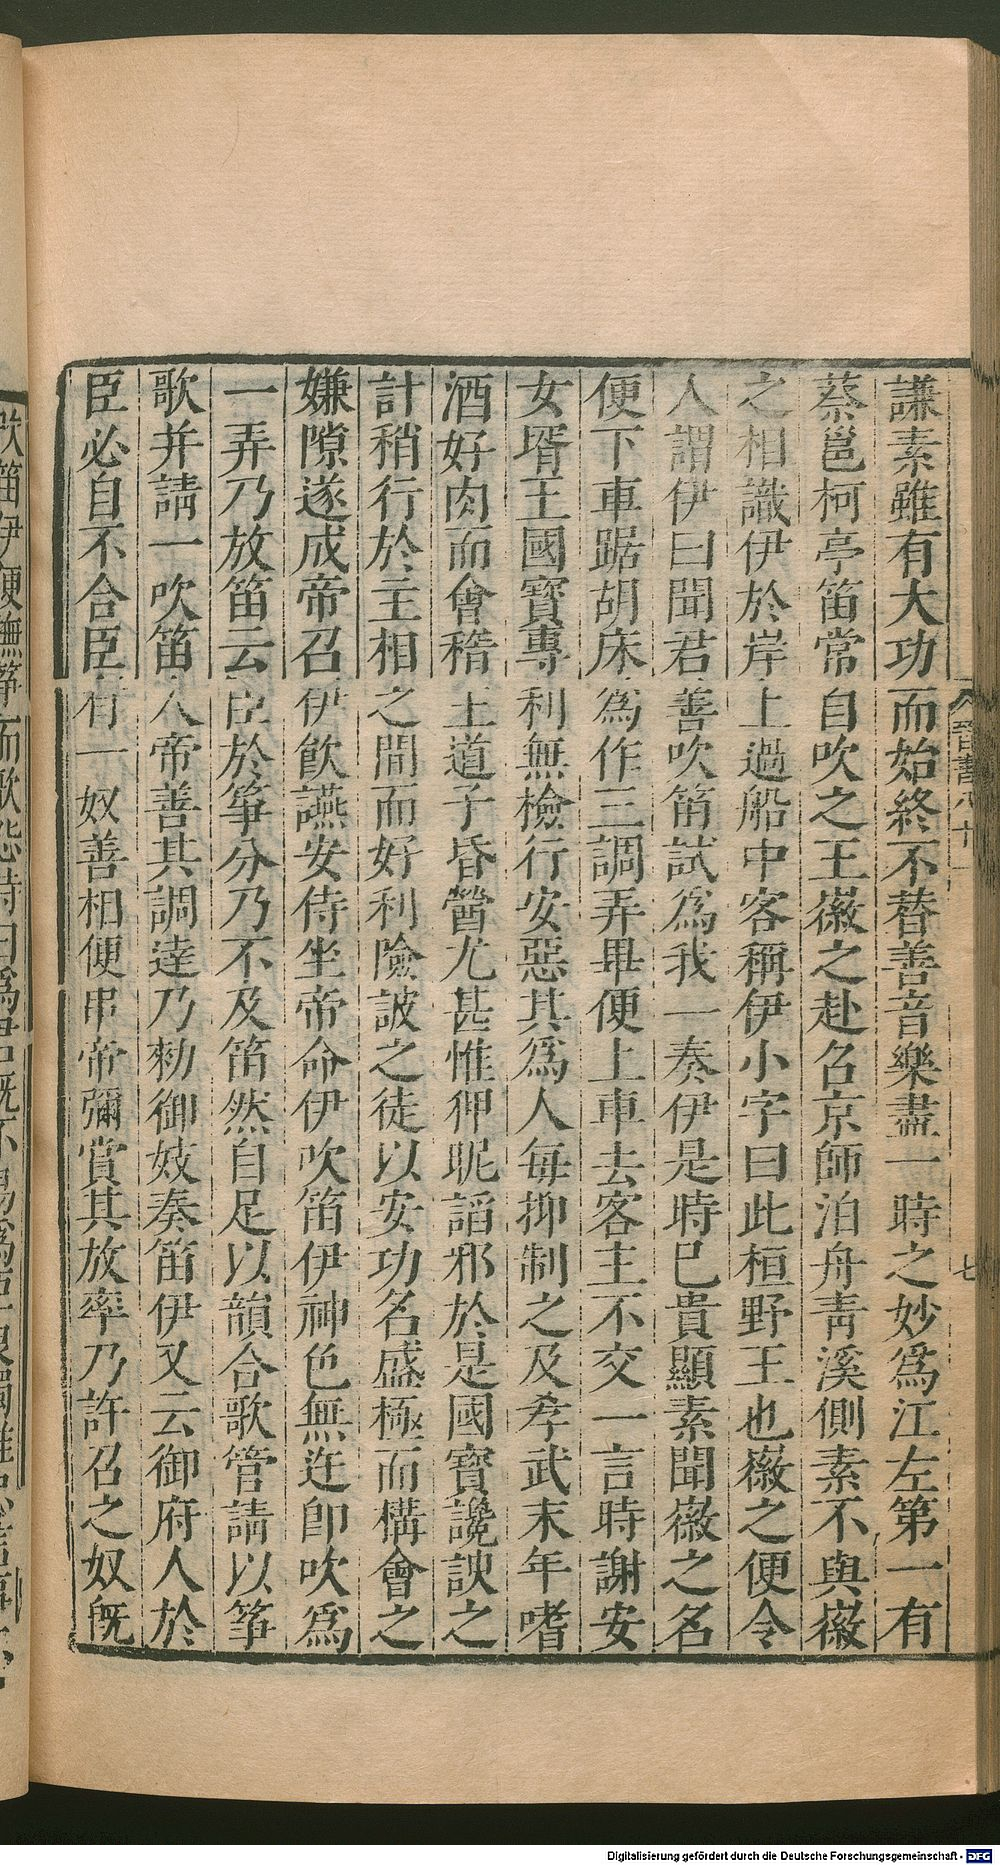 謙素雖有大功而始終不替善音樂盡一時之妙爲江左第一有
蔡邕柯亭笛常自吹之王徽之赴召京師泊舟靑溪側素不與徽
之相識伊於岸上過船中客稱伊小字曰此桓野王也徽之便令
人謂伊曰聞君善吹笛試爲我一奏伊是時已貴顯素聞徽之名
便下車踞胡床爲作三調弄畢便上車去客主不交一言時謝安
女壻王國寶專利無檢行安惡其爲人每抑制之及孝武末年嗜
酒好肉而會稽王道子昏醟尤甚惟狎昵諂邪於是國寶讒諛之
計稍行於主相之間而好利險詖之徒以安功名盛極而構會之
嫌隙遂成帝召伊飮讌安侍坐帝命伊吹笛伊神色無迕卽吹爲
一弄乃放笛云臣於箏分乃不及笛然自足以韻合歌管請以箏
歌并請一吹笛人帝善其調達乃勑御妓奏笛伊又云御府人於
臣必自不合臣有一奴善相便串帝彌賞其放率乃許召之奴旣
晉書八十一
七
吹笛伊便撫箏而歌怨詩曰爲君旣不易爲臣
Digitalisierung gefördert durch die Deutsche Forschungsgemeinschaft - DFG